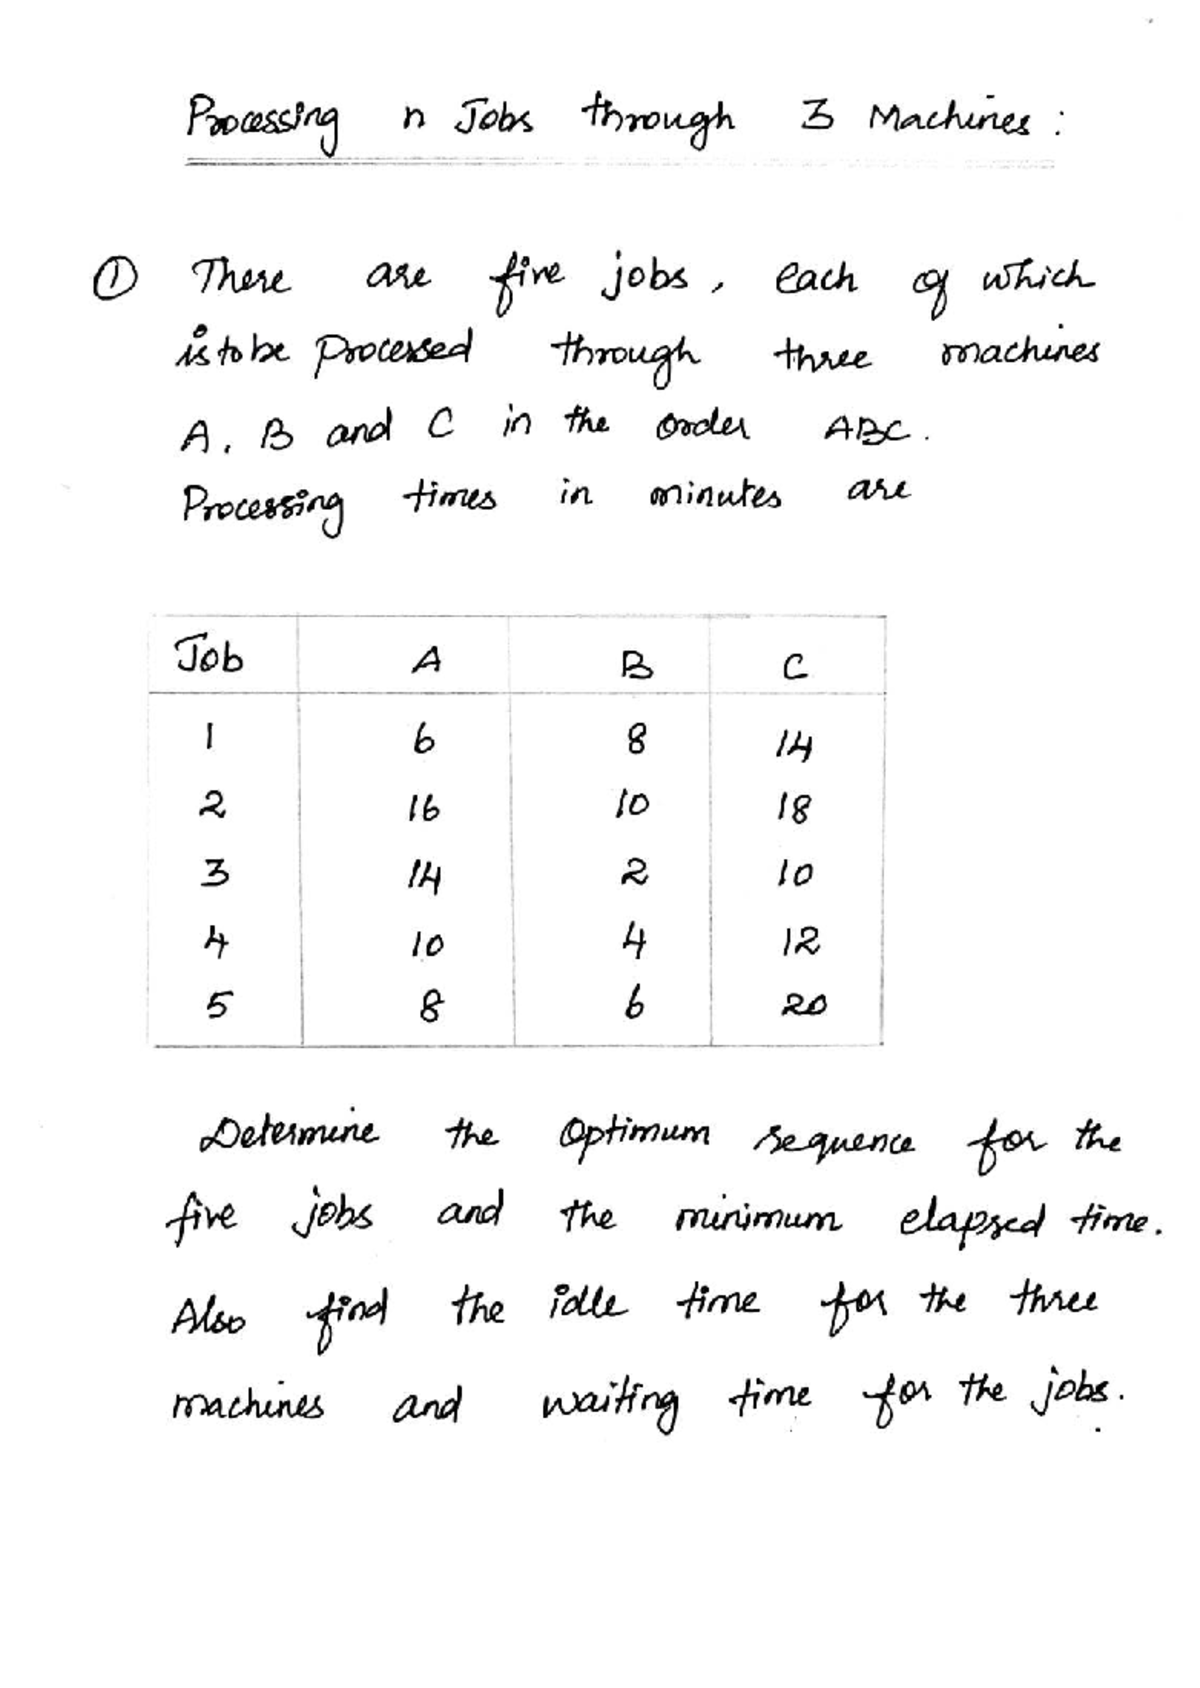 Processing n Jobs through 3 Machines :
① There are five jobs, each of which
is to be processed through three machines
A, B and C in the order ABC.
Processing times in minutes are
Job A B C
1 6 8 14
2 16 10 18
3 14 2 10
4 10 4 12
5 8 6 20
Determine the optimum sequence for the
five jobs and the minimum elapsed time.
Also find the idle time for the three
machines and waiting time for the jobs.